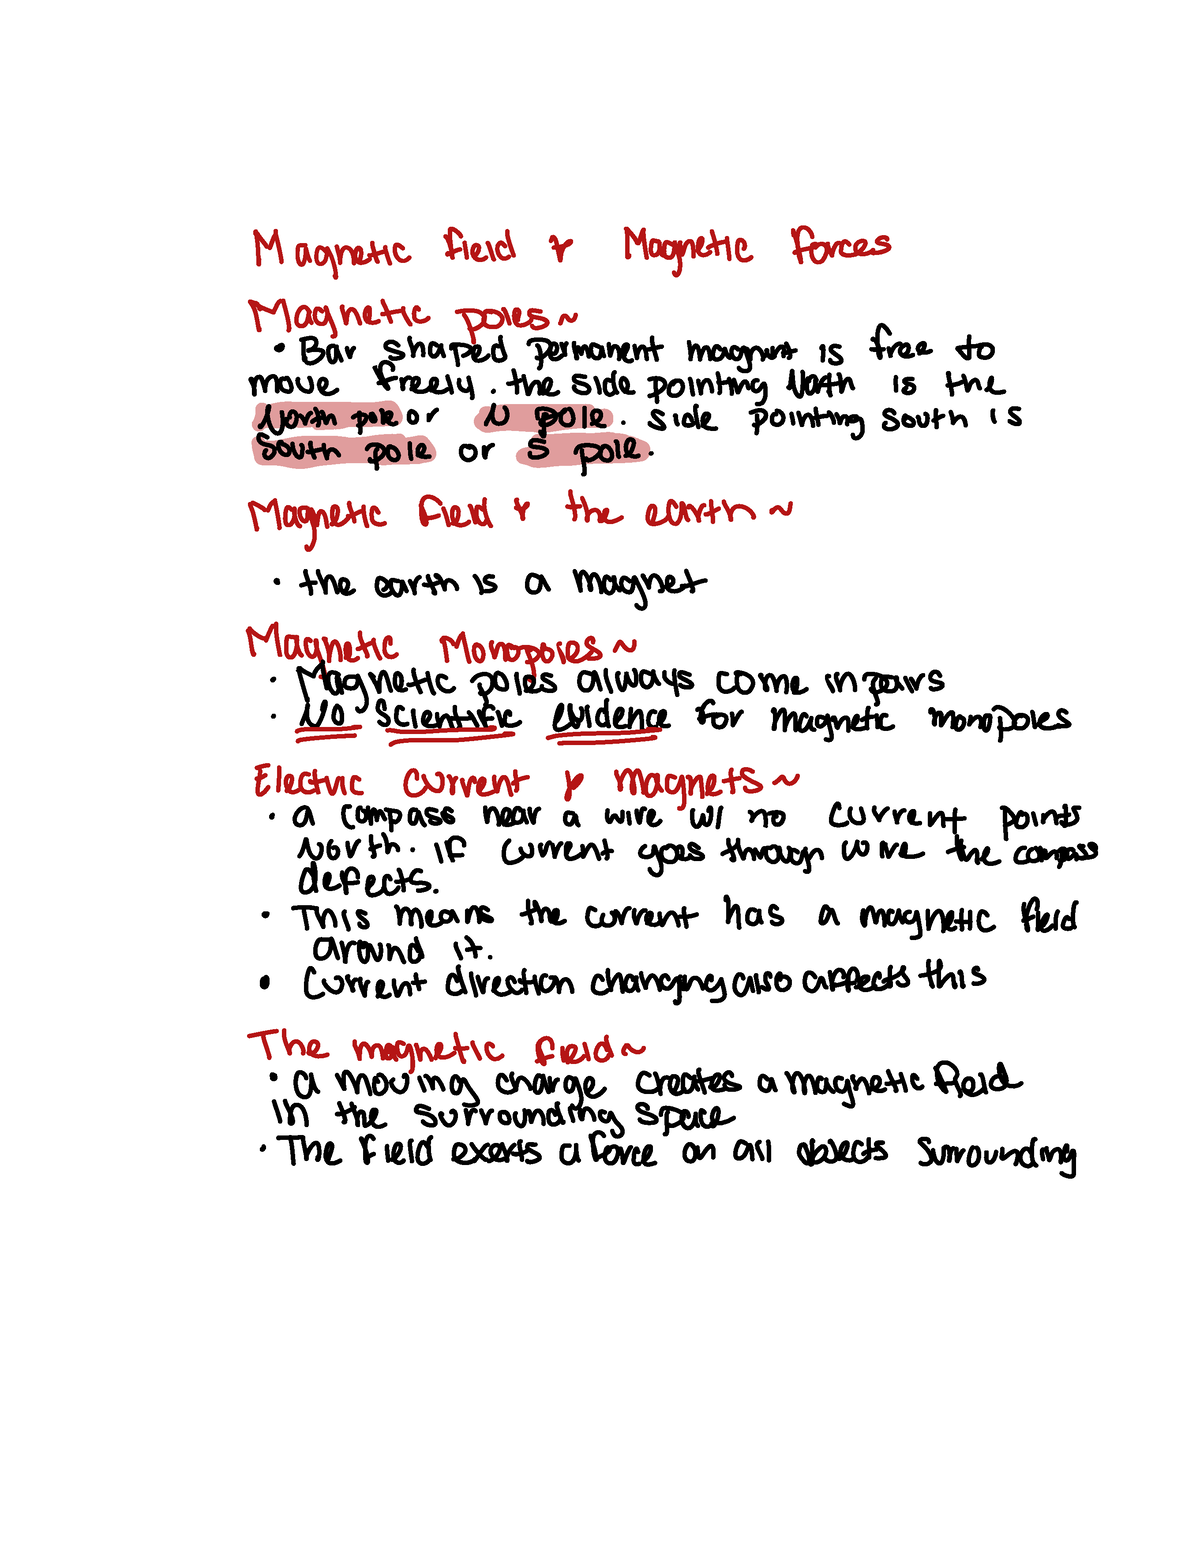 Magnetic field & Magnetic forces
Magnetic poles~
• Bar shaped permanent magnet is free to
move freely. the side pointing North is the
North pole or N pole. side pointing south is
South pole or S pole.
Magnetic field & the earth~
• the earth is a magnet
Magnetic Monopoles~
• Magnetic poles always come in pairs
• No scientific evidence for magnetic monopoles
Electric current & magnets~
• a compass near a wire w/ no current points
North. if current goes through wire the compass
defects.
• This means the current has a magnetic field
around it.
• Current direction changing also affects this
The magnetic field~
• a moving charge creates a magnetic field
in the surrounding space
• The field exerts a force on all objects surrounding